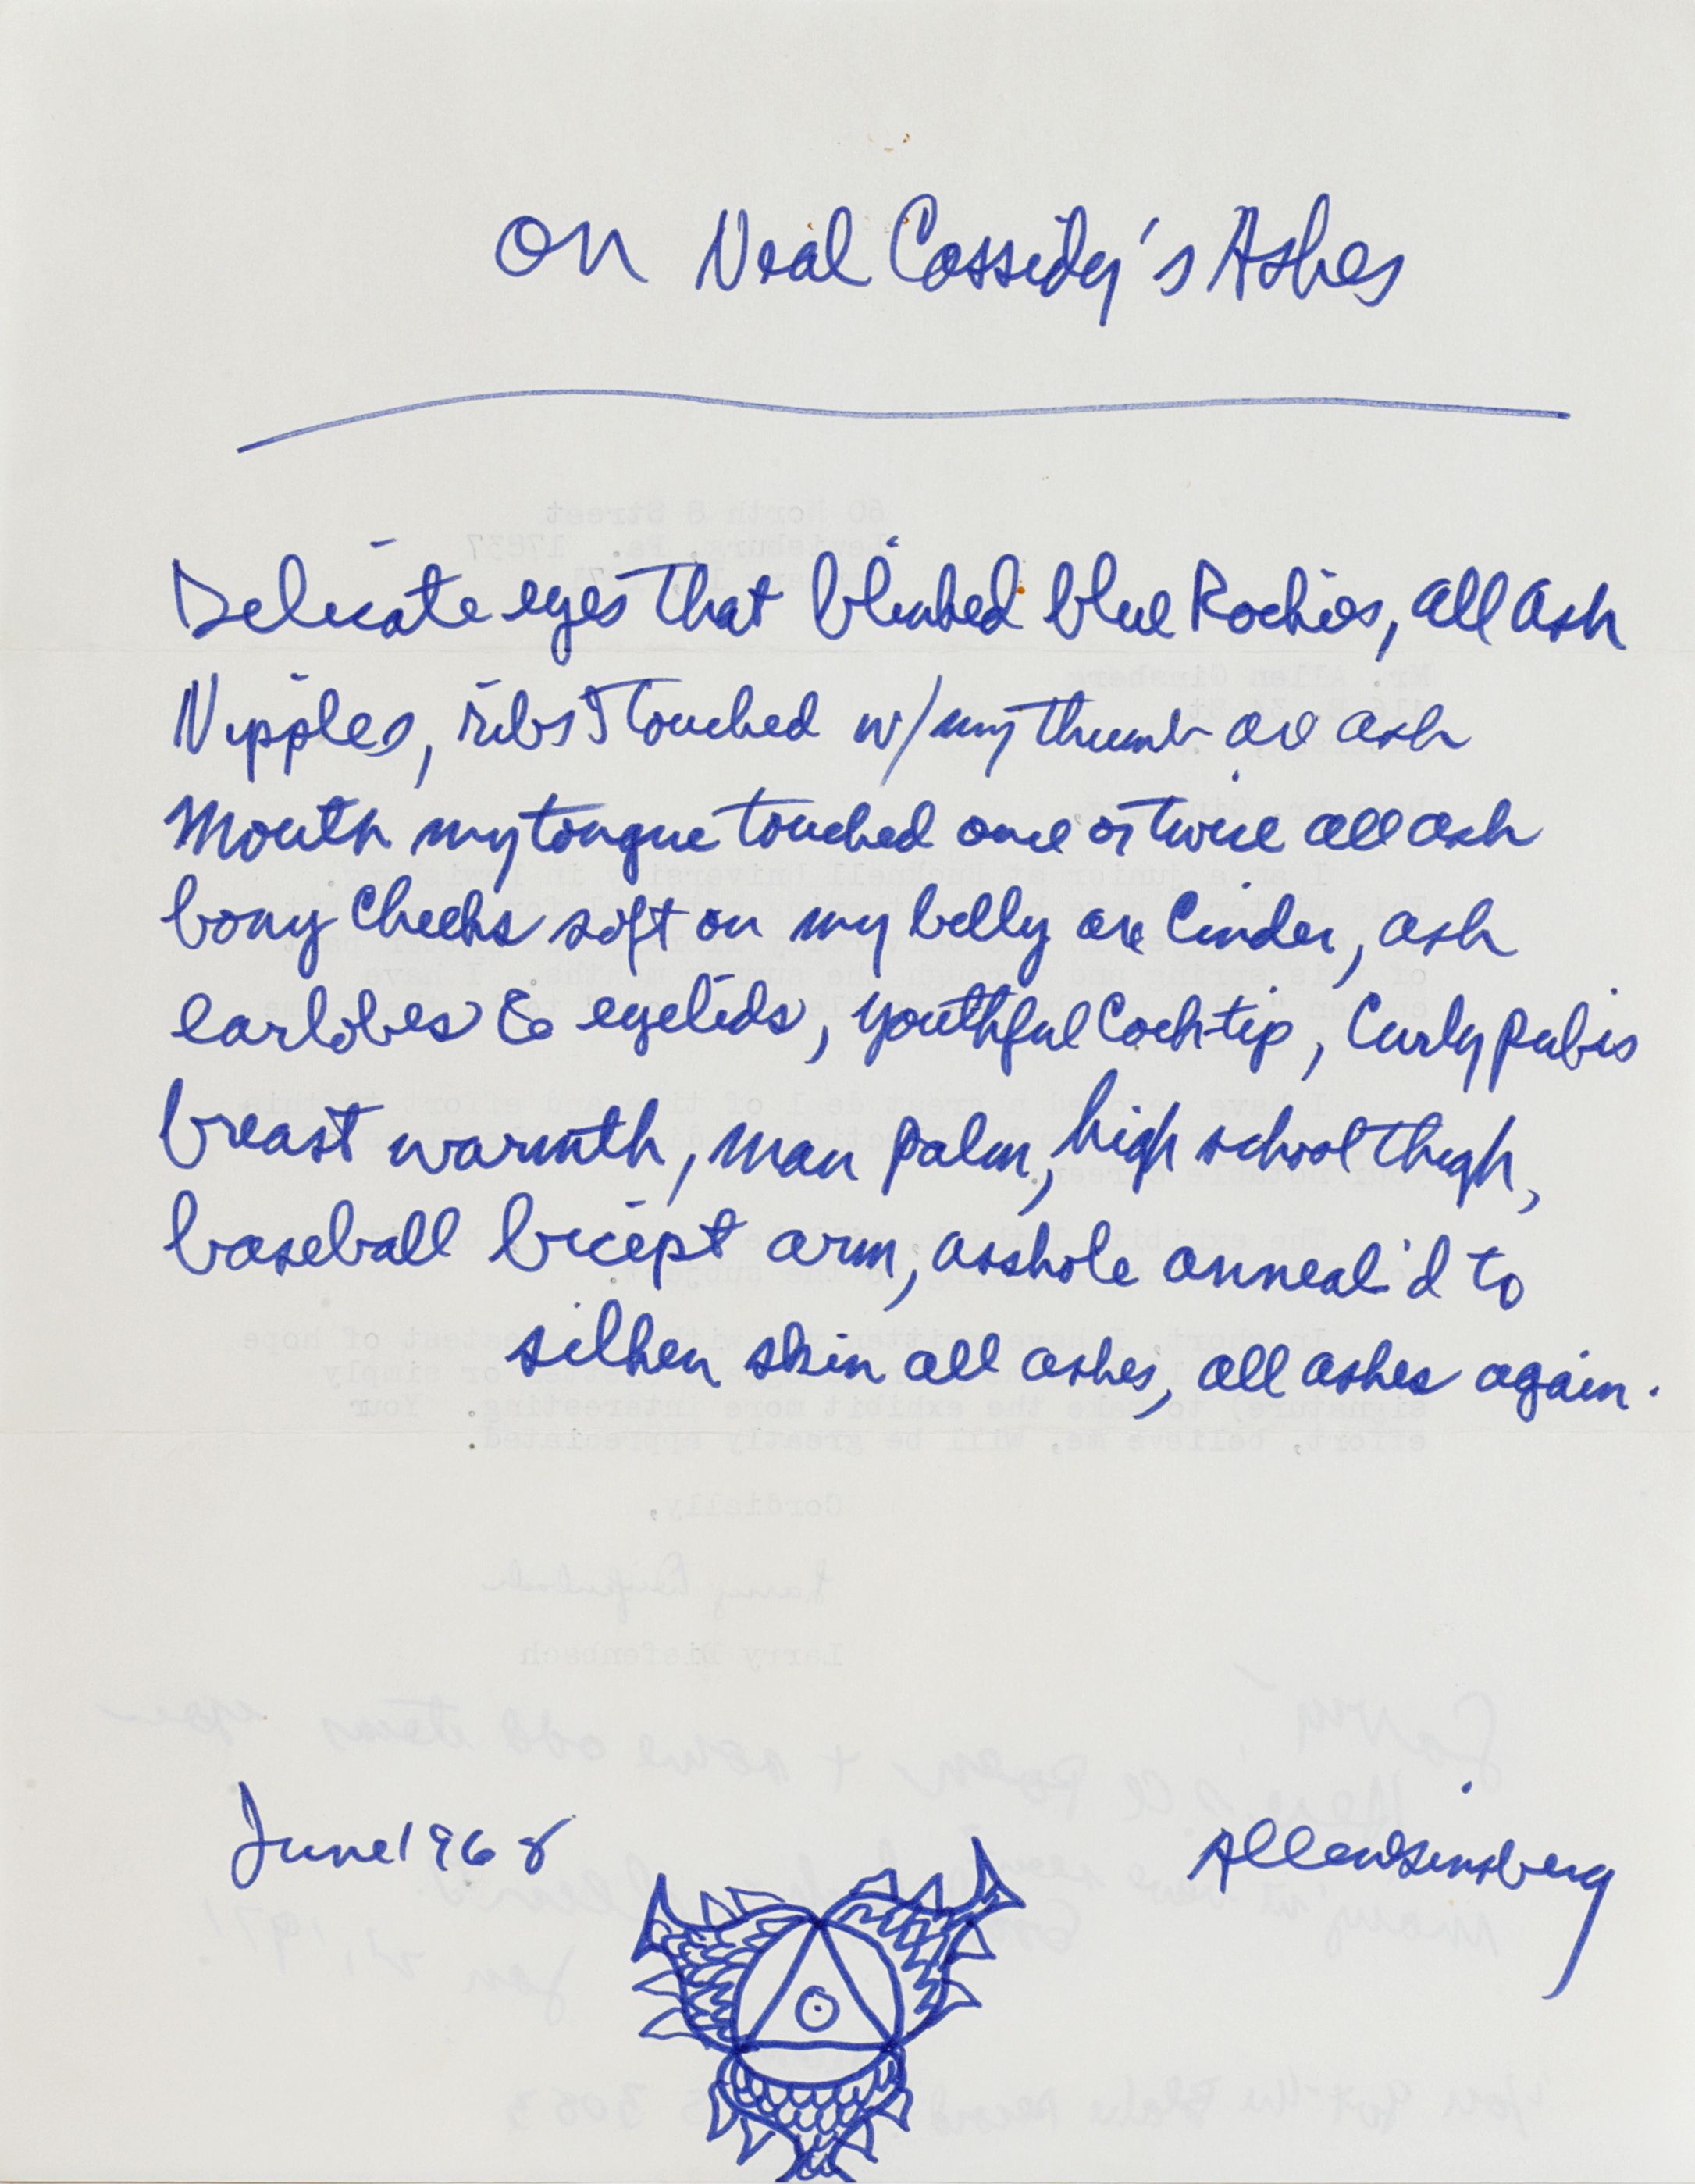 On Neal Cassidy's Ashes
Delicate eyes that blinked blue Rockies, all ash
Nipples, ribs I touched w/my thumb are ash
Mouth my tongue touched once or twice all ash
bony Cheeks soft on my belly are Cinder, ash
earlobes & eyelids, youthful Cock tip, Curly pubis
breast warmth, man palm, high school thigh,
baseball bicept arm, asshole anneal'd to
silken skin all ashes, all ashes again.
June 1968
Allen Ginsberg